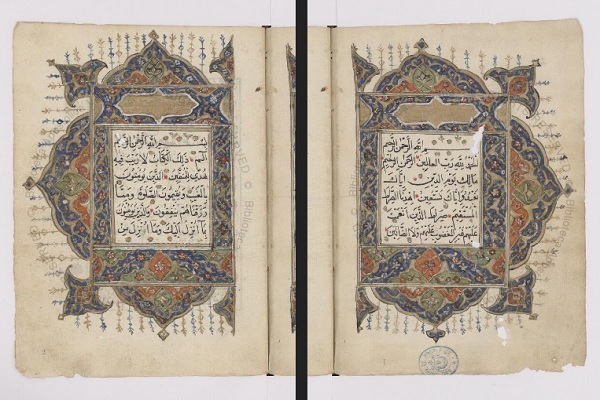 بسم الله الرحمن الرحيم
الحمد لله رب العالمين الرحمن الرحيم
مالك يوم الدين اياك
نعبد واياك نستعين اهدنا الصراط
المستقيم صراط الذين انعمت
عليهم غير المغضوب عليهم ولا الضالين
بسم الله الرحمن الرحيم
الم ذلك الكتاب لا ريب فيه
هدى للمتقين الذين يؤمنون
بالغيب ويقيمون الصلوة ومما
رزقناهم ينفقون والذين يؤمنون
بما انزل اليك وما انزل من